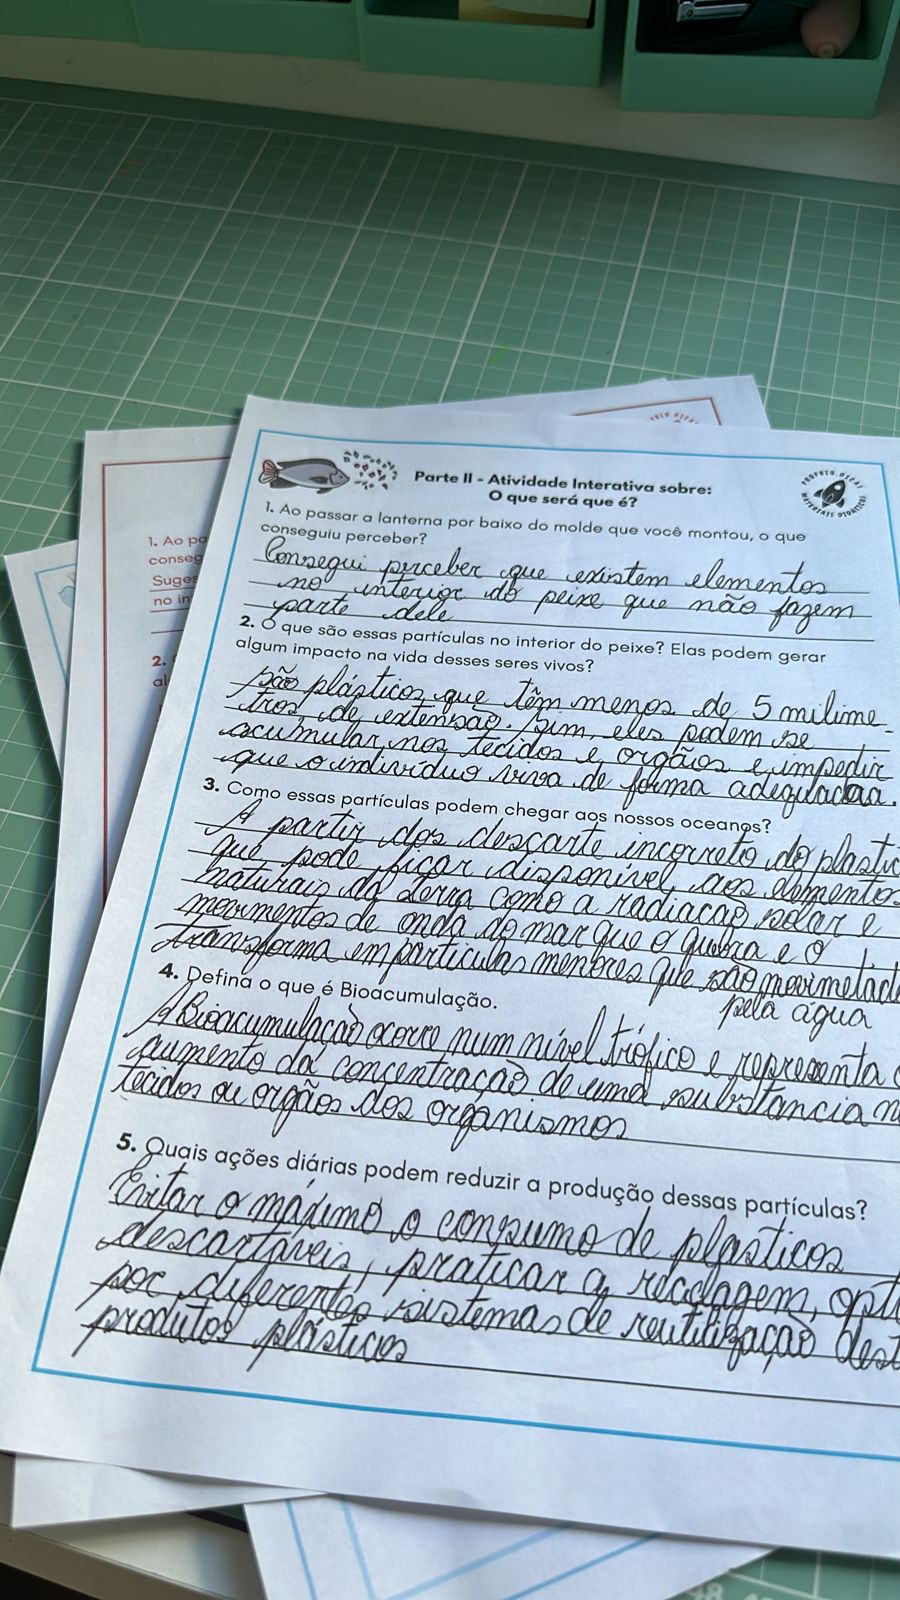 Parte II - Atividade Interativa sobre:
O que será que é?
PROJETO OSCAS
MATERIAIS DIDÁTICOS
1. Ao passar a lanterna por baixo do molde que você montou, o que
conseguiu perceber?
Consegui perceber que existem elementos
no interior do peixe que não fazem
parte dele
2. O que são essas partículas no interior do peixe? Elas podem gerar
algum impacto na vida desses seres vivos?
São plásticos que têm menos de 5 milime-
tros de extensão. Sim, eles podem se
acumular nos tecidos e orgãos e impedir
que o indivíduo viva de forma adequadaa.
3. Como essas partículas podem chegar aos nossos oceanos?
A partir dos descarte incorreto do plastic
que pode ficar disponível aos elementos
naturais da terra como a radiação solar e
movimentos de onda do mar que o quebra e o
transforma em particulas menores que são movimetad
pela água
4. Defina o que é Bioacumulação.
A Bioacumulação ocorre num nível trófico e representa
aumento da concentração de uma substancia n
tecidos ou orgãos dos organismos
5. Quais ações diárias podem reduzir a produção dessas partículas?
Evitar o máximo o consumo de plasticos
descartáveis, praticar a reciclagem, opt
por diferentes sistemas de reutilização dest
produtos plásticos
1. Ao pa
conseg
Suges
no in
2.
al